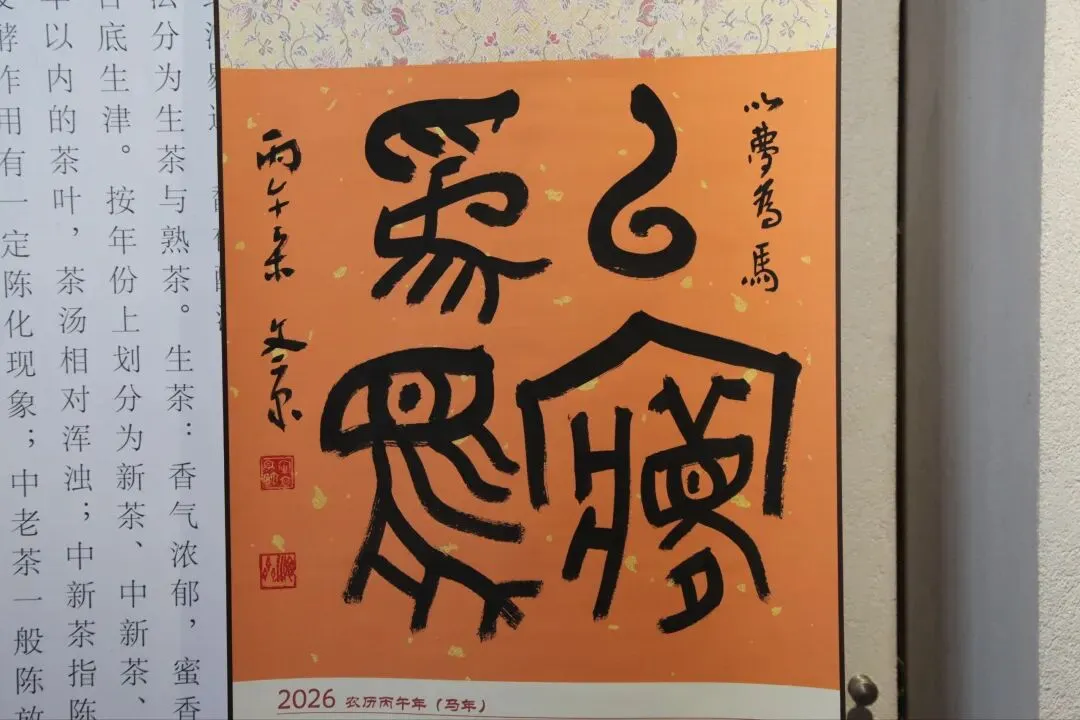 以夢為馬
以夢
為馬
丙午
2026 农历丙午年（马年）
分为生茶与熟茶。生茶：香气浓郁，蜜香
底生津。按年份上划分为新茶、中新茶、
年以内的茶叶，茶汤相对浑浊；中新茶指陈
酵作用有一定陈化现象；中老茶一般陈放